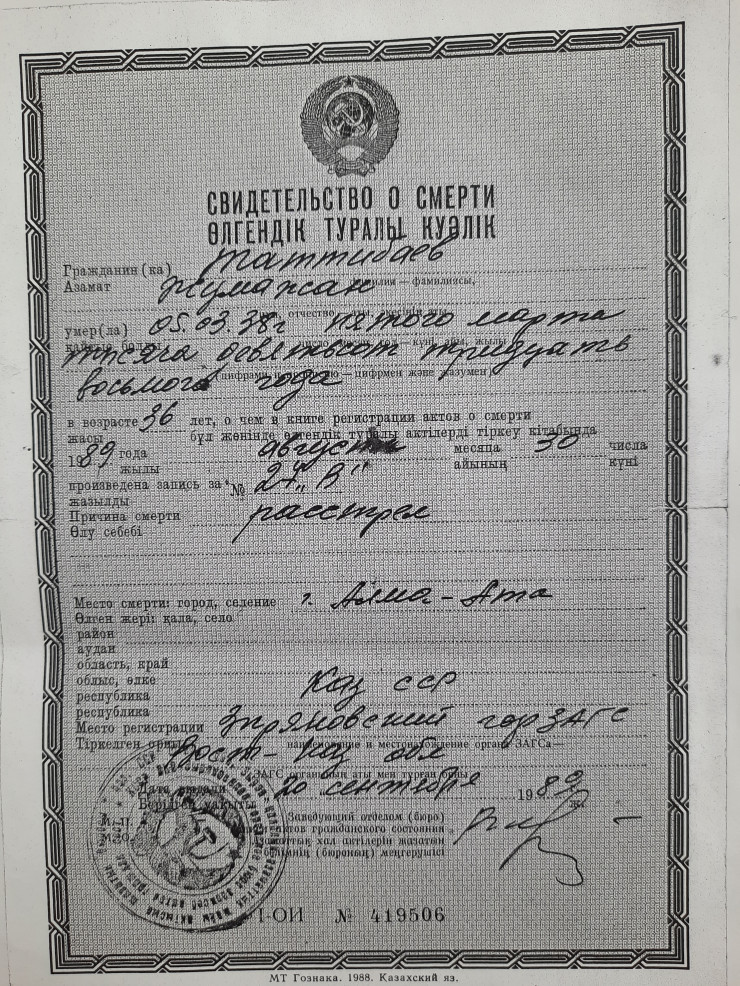 СВИДЕТЕЛЬСТВО О СМЕРТИ
ӨЛГЕНДІК ТУРАЛЫ КУӘЛІК
Гражданин(ка) Таттибаев
Азамат фамилия — фамилиясы,
Жумажан
отчество
умер(ла) 05.03.38г пятого марта
қайтыс болды число — күні, айы, жылы
тысяча девятьсот тридцать
(цифрами и прописью — цифрмен және жазумен)
восьмого года
в возрасте 36 лет, о чем в книге регистрации актов о смерти
жасы бұл жөнінде өлгендік туралы актілерді тіркеу кітабында
1989 года август месяца 30 числа
жылы айының күні
произведена запись за № 27 „В"
жазылды
Причина смерти расстрел
Өлу себебі
Место смерти: город, селение г. Алма-Ата
Өлген жері: қала, село
район
аудан
область, край
облыс, өлке
республика Каз ССР
республика
Место регистрации Зыряновский горЗАГС
Тіркелген орны наименование и местонахождение органа ЗАГСа —
Вост-Каз обл
ЗАГС органының аты мен тұрған орны
Дата выдачи 20 сентября 1989
Берілген уақыты ж.
М. П. Заведующий отделом (бюро)
М. О. актов гражданского состояния
азаматтық хал актілерін жазатын
бөлімнің (бюроның) меңгерушісі
І-ОИ № 419506
МТ Гознака. 1988. Казахский яз.